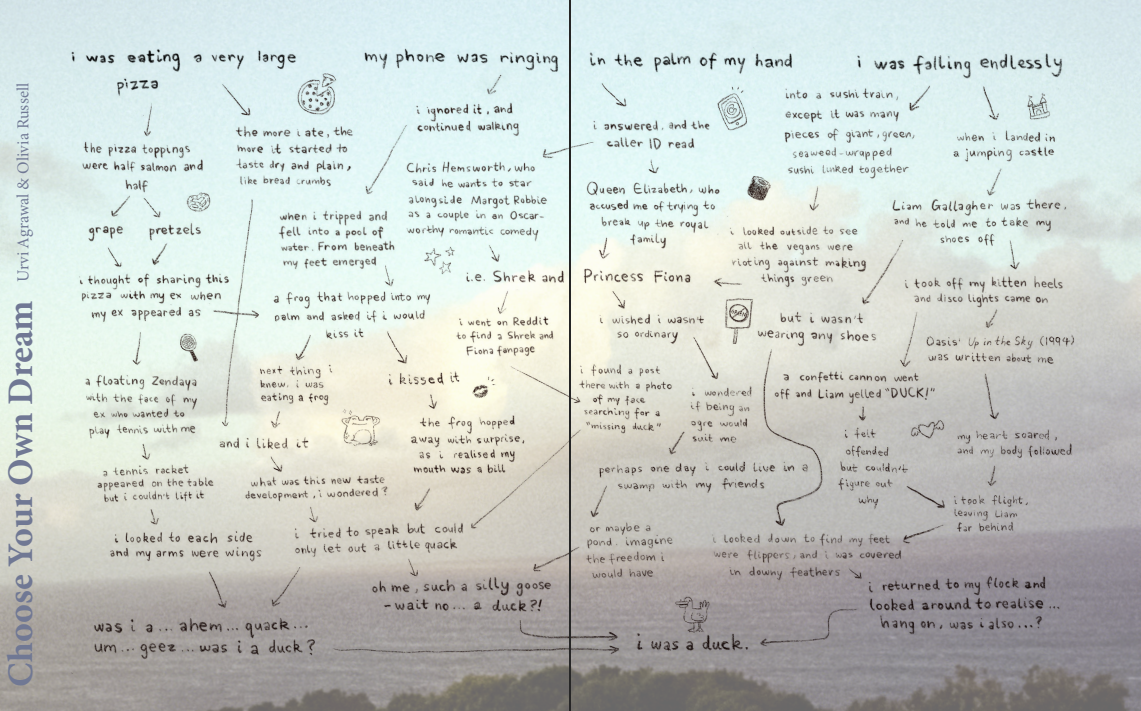 Choose Your Own Dream Urvi Agrawal & Olivia Russell
i was eating a very large
pizza
the pizza toppings
were half salmon and
half
grape
pretzels
the more i ate, the
more it started to
taste dry and plain,
like bread crumbs
i thought of sharing this
pizza with my ex when
my ex appeared as
a floating Zendaya
with the face of my
ex who wanted to
play tennis with me
a tennis racket
appeared on the table
but i couldn't lift it
i looked to each side
and my arms were wings
was i a ... ahem ... quack ...
um ... geez ... was i a duck ?
my phone was ringing
i ignored it, and
continued walking
when i tripped and
fell into a pool of
water. From beneath
my feet emerged
a frog that hopped into my
palm and asked if i would
kiss it
next thing i
knew, i was
eating a frog
and i liked it
what was this new taste
development, i wondered?
i kissed it
the frog hopped
away with surprise,
as i realised my
mouth was a bill
i tried to speak but could
only let out a little quack
oh me, such a silly goose
- wait no ... a duck ?!
Chris Hemsworth, who
said he wants to star
alongside Margot Robbie
as a couple in an Oscar-
worthy romantic comedy
i.e. Shrek and
Princess Fiona
i went on Reddit
to find a Shrek and
Fiona fanpage
in the palm of my hand
i answered, and the
caller ID read
Queen Elizabeth, who
accused me of trying to
break up the royal
family
i wished i wasn't
so ordinary
i found a post
there with a photo
of my face
searching for a
"missing duck"
i wondered
if being an
ogre would
suit me
perhaps one day i could live in a
swamp with my friends
or maybe a
pond. imagine
the freedom i
would have
i was falling endlessly
into a sushi train,
except it was many
pieces of giant, green,
seaweed-wrapped
sushi linked together
i looked outside to see
all the vegans were
rioting against making
things green
but i wasn't
wearing any shoes
when i landed in
a jumping castle
Liam Gallagher was there,
and he told me to take my
shoes off
i took off my kitten heels
and disco lights came on
Oasis' Up in the Sky (1994)
was written about me
a confetti cannon went
off and Liam yelled "DUCK!"
i felt
offended
but couldn't
figure out
why
my heart soared,
and my body followed
i took flight,
leaving Liam
far behind
i looked down to find my feet
were flippers, and i was covered
in downy feathers
i returned to my flock and
looked around to realise ...
hang on, was i also ...?
i was a duck.